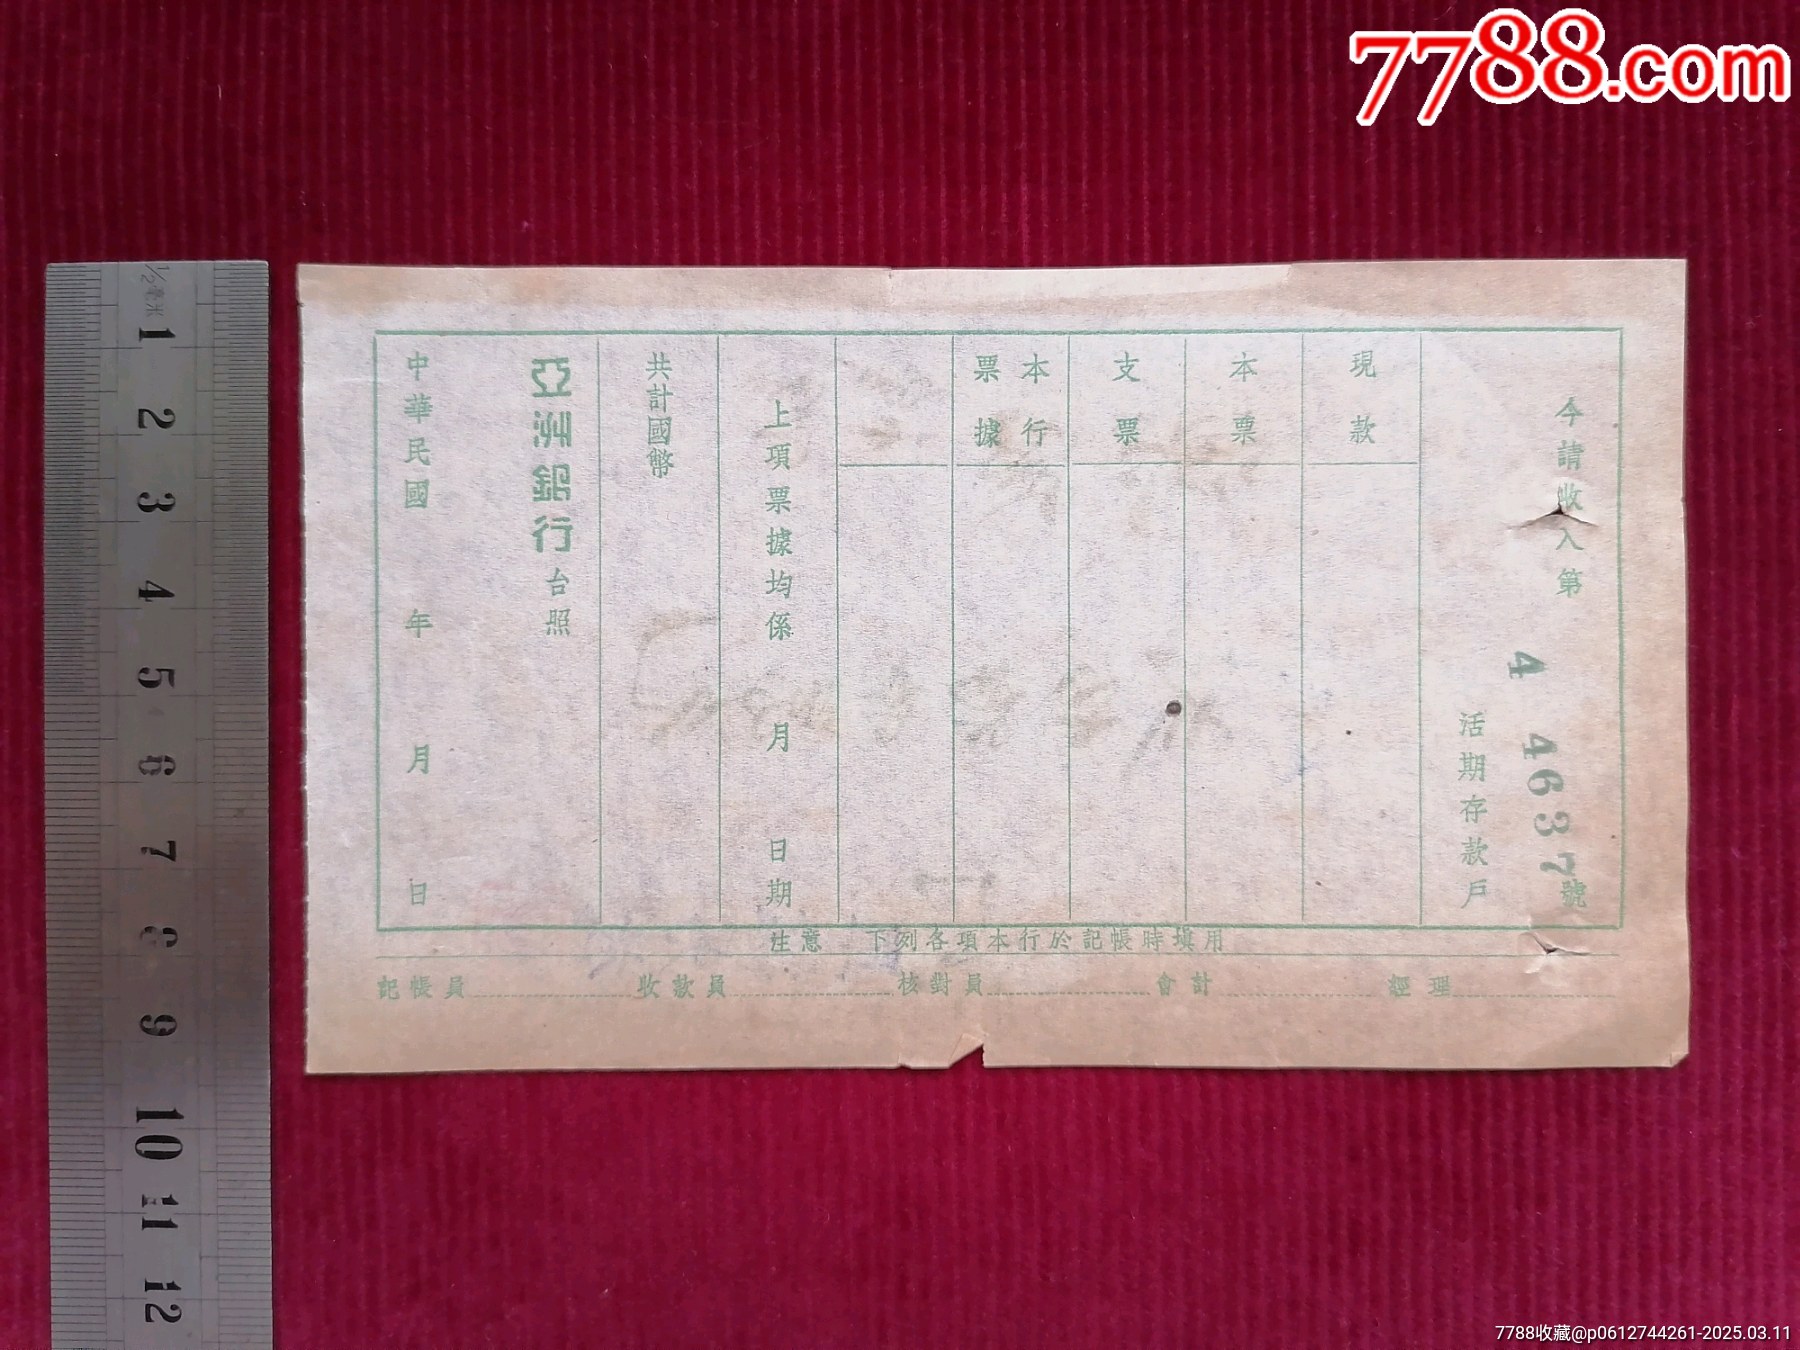 7788.com
今請收入第
4 4637號
活期存款戶
現款
本票
支票
本行
票據
上項票據均係 月 日期
共計國幣
亞洲銀行台照
中華民國 年 月 日
注意 下列各項本行於記帳時填用
記帳員 收款員 核對員 會計 經理
1/2毫米
1
2
3
4
5
6
7
8
9
10
11
12
7788收藏@p0612744261-2025.03.11